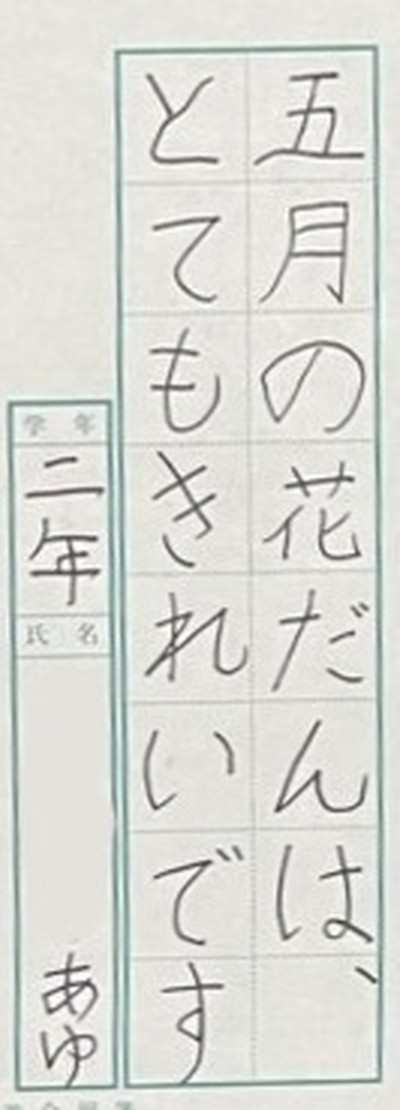 五月の花だんは、
とてもきれいです
学年
二年
氏名
あゆ